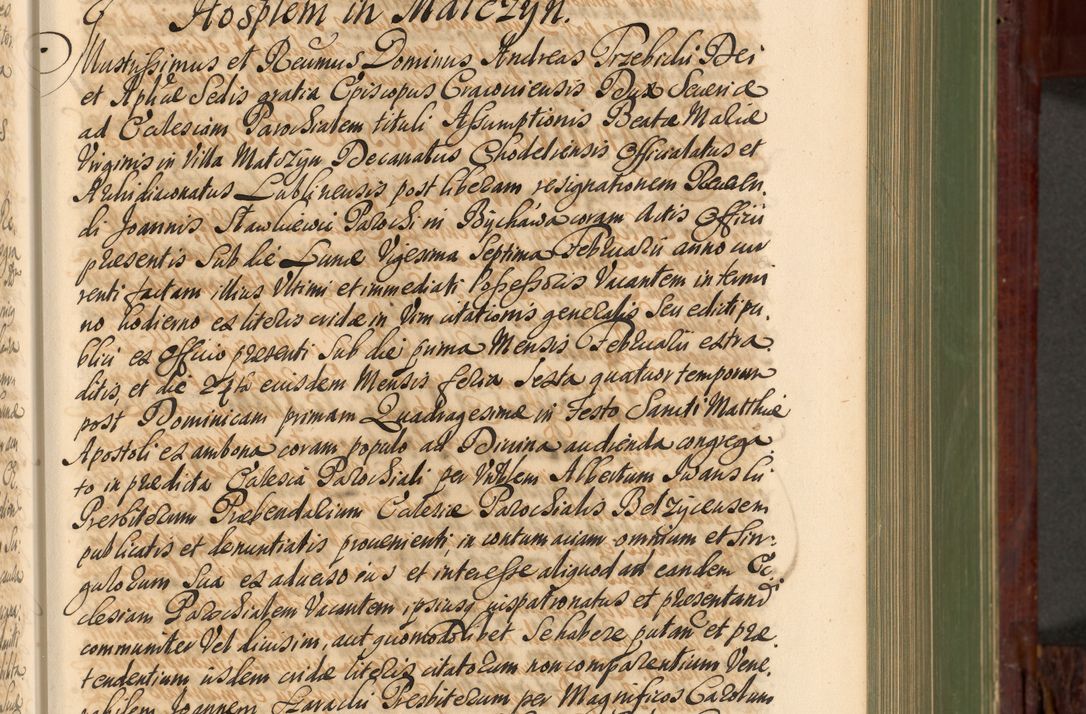 Hosplem in Matczyn.
Illustrissimus et Reumus Dominus Andreas Trzebicki Dei
et Aplicæ Sedis gratia Episcopus Cracouiensis Dux Seueriæ
ad Ecclesiam Parochialem tituli Assumptionis Beatæ Mariæ
Virginis in Villa Matczyn Decanatus Chodeliensis Officialatus et
Archidiaconatus Lublinensis post liberam resignationem Reueren,
di Joannis Parochi in Bychawa coram Actis Officii
præsentis sub die Lunæ Vigesima Septima Februarii anno cur
renti factam illius Vltimi et immediati Possessoris Vacantem in termi
no hodierno ex literis cridæ in Vim citationis generalis Seu edicti pu,
blici ex Officio præsenti sub die prima Mensis Februarii extra
ditis, et die 24ta eiusdem Mensis feria Sexta quatuor temporum
post Dominicam primam Quadragesimæ in Festo Sancti Matthiæ
Apostoli ex ambona coram populo ad Diuina audienda congrega,
to in prædicta Ecclesia Parochiali per Vnblem Albertum
Presbiterum Præbendarium Ecclesiæ Parochialis Belzycensem
publicatis et denuntiatis prouenienti, in contumaciam omnium et Sin,
gulorum Sua ex aduerso ius et interesse aliquod ad eandem Ec,
clesiam Parochialem Vacantem, ipsiusq iuspatronatus et præsentandi
communiter Vel diuisim, aut quomodolibet Se habere putan et præ,
tendentium iisdem cridæ literis citatorum non comparentium Vene,
rabilem Joannem Presbiterum per Magnificos Carolum